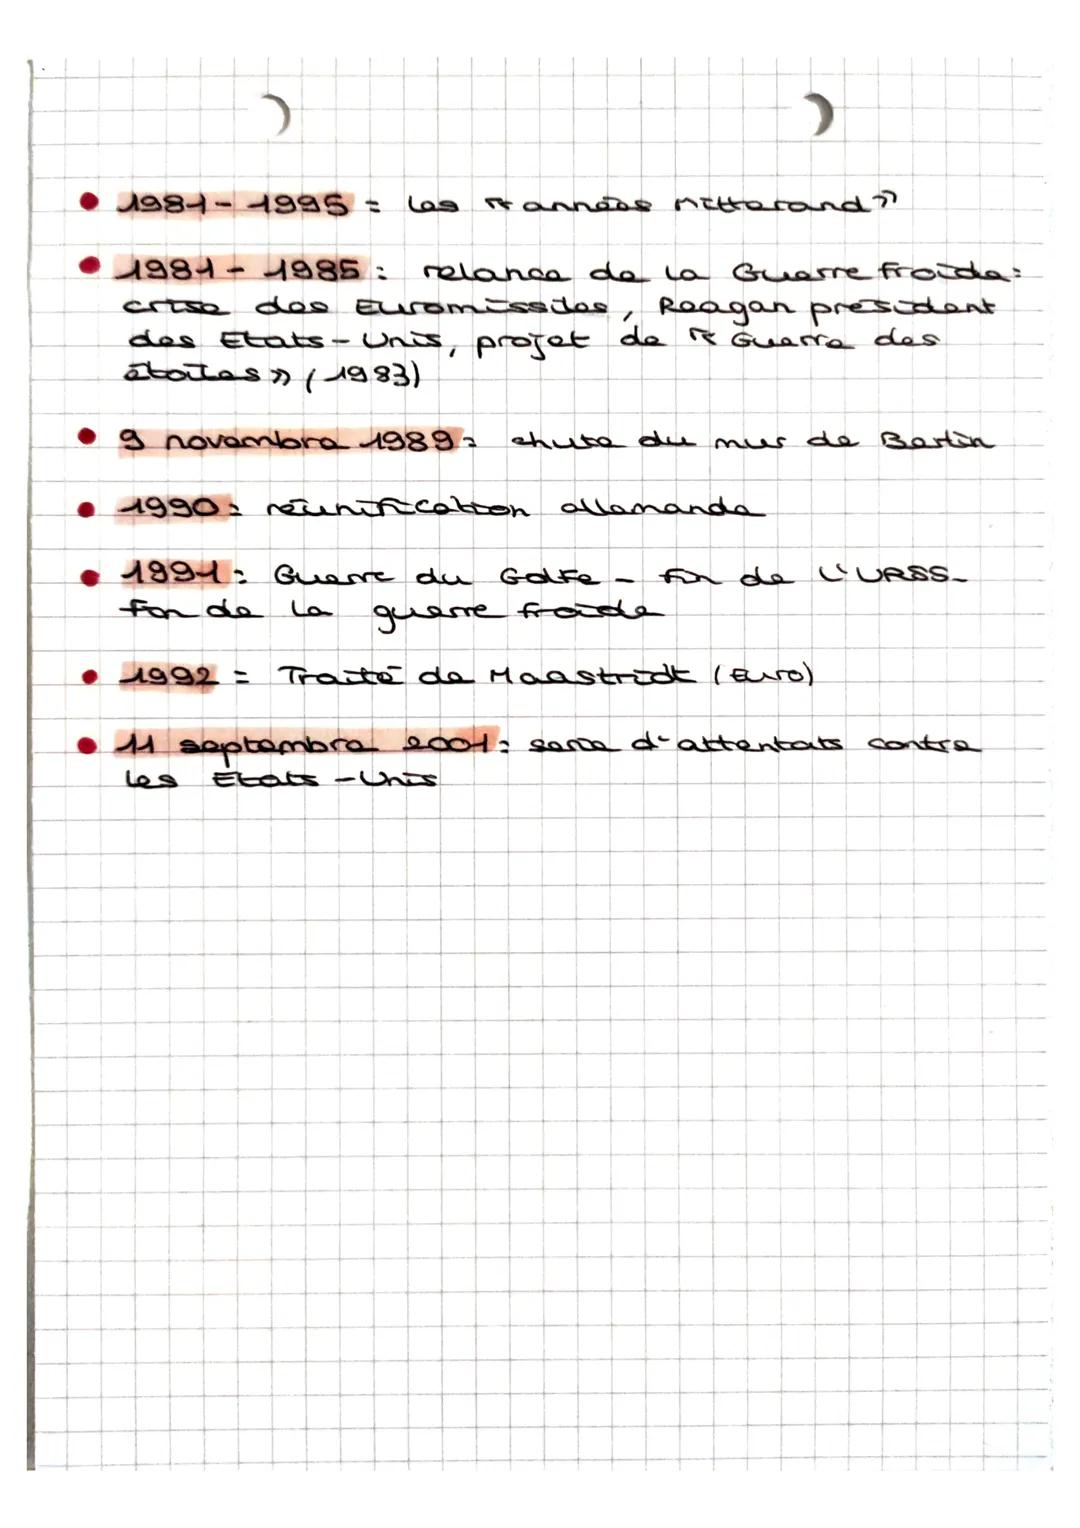 1981-1995 : les « années Mitterand »
1981 - 1985 : relance de la Guerre froide :
crise des Euromissiles, Reagan president
des Etats-Unis, projet de « Guerre des
étoiles » (1983)
9 novembre 1989 : chute du mur de Berlin
1990 : réunification allemande
1991 : Guerre du Golfe - fin de l'URSS -
fin de la guerre froide
1992 : Traité de Maastricht (Euro)
11 septembre 2001 : serie d'attentats contre
les Etats-Unis